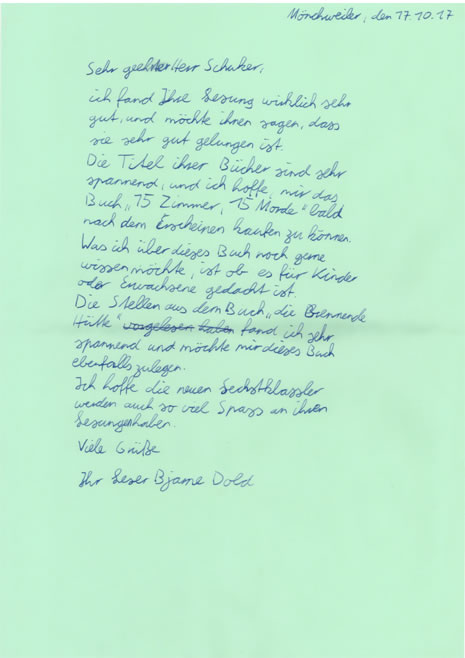 Mönchweiler, den 17.10.17
Sehr geehrter Herr Schuker,
ich fand Ihre Lesung wirklich sehr
gut, und möchte ihnen sagen, dass
sie sehr gut gelungen ist.
Die Titel ihrer Bücher sind sehr
spannend, und ich hoffe, mir das
Buch „15 Zimmer, 15 Morde“ bald
nach dem Erscheinen kaufen zu können.
Was ich über dieses Buch noch gerne
wissen möchte, ist ob es für Kinder
oder Erwachsene gedacht ist.
Die Stellen aus dem Buch „die Brennende
Hütte“ vorgelesen haben fand ich sehr
spannend und möchte mir dieses Buch
ebenfalls zulegen.
Ich hoffe die neuen Sechstklässler
werden auch so viel Spass an ihren
Lesungen haben.
Viele Grüße
Ihr Leser Bjarne Dold